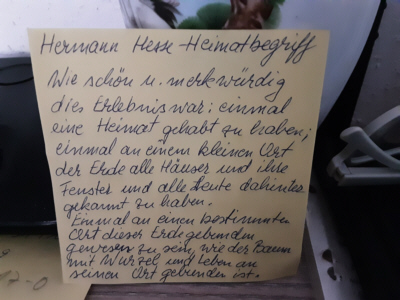 Hermann Hesse-Heimatbegriff
Wie schön u. merkwürdig
dies Erlebnis war: einmal
eine Heimat gehabt zu haben;
einmal an einem kleinen Ort
der Erde alle Häuser und ihre
Fenster und alle Leute dahinter
gekannt zu haben.
Einmal an einen bestimmten
Ort dieser Erde gebunden
gewesen zu sein, wie der Baum
mit Wurzel und Leben an
seinen Ort gebunden ist.